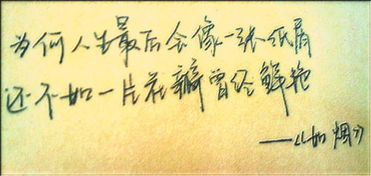 为何人生最后会像一张纸屑
还不如一片花瓣曾经鲜艳
——《如烟》